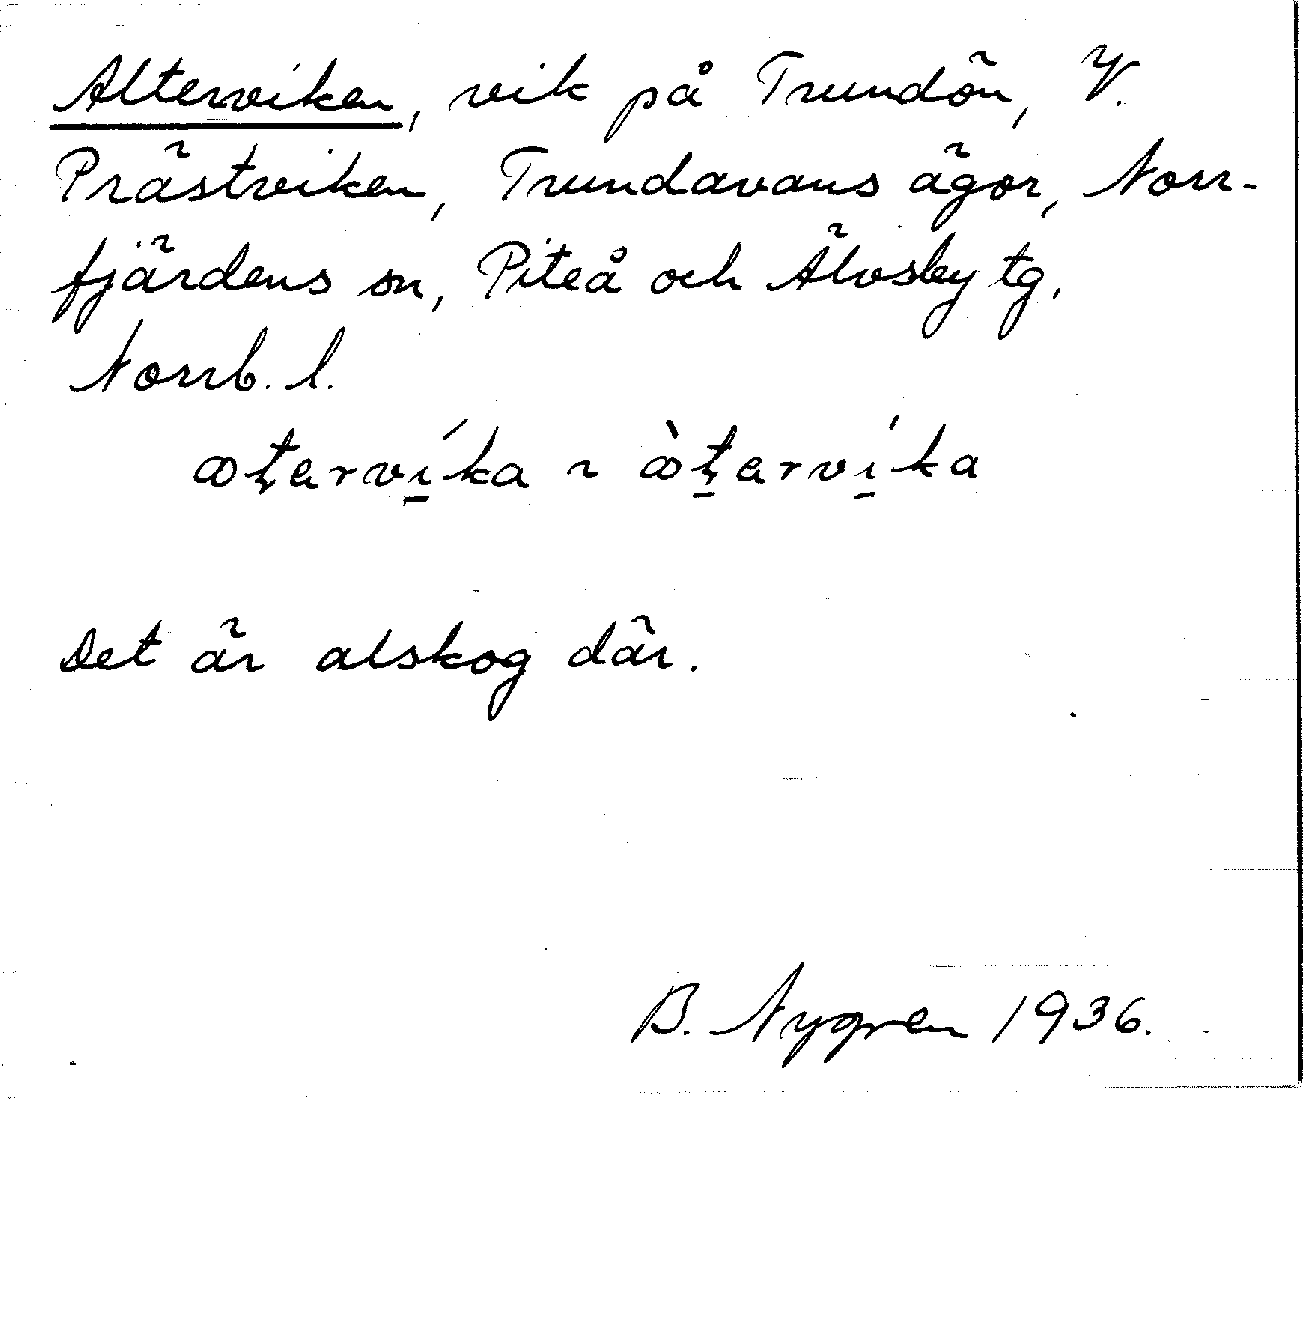 Alterviken, vik på Trundön, V.
Prästviken, Trundavans ägor, Norr-
fjärdens sn, Piteå och Älvsby tg,
Norrb. l.
Det är alskog där.
B. Nygren 1936.